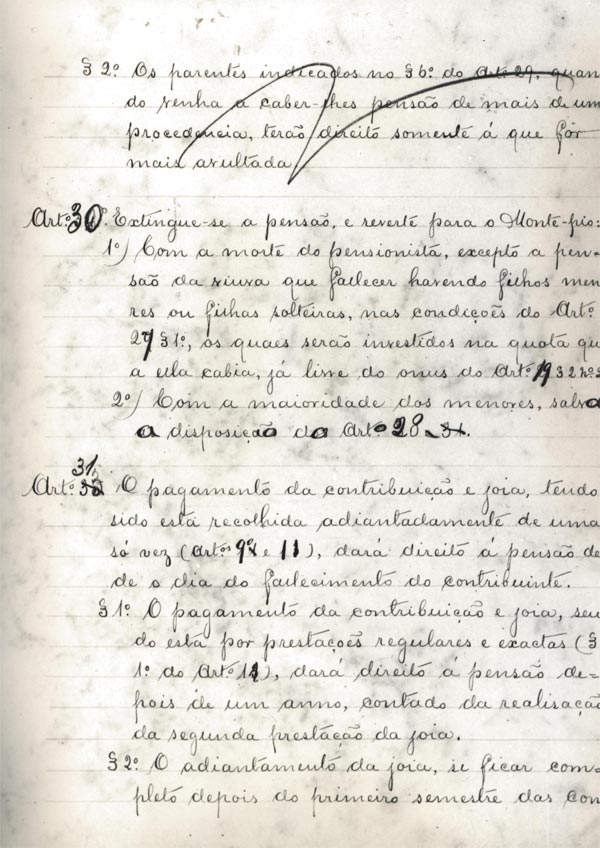 § 2º Os parentes indicados no § 6º do Art. 29, quan
do venha a caber-lhes pensão de mais de um
procedencia, terão direito somente á que fôr
mais avultada.
Artº 30º. Extingue-se a pensão, e reverte para o Monte-pio:
1º) Com a morte do pensionista, excepto a pen-
são da viuva que fallecer havendo filhos men
res ou filhas solteiras, nas condições do Artº
27 § 1º, os quaes serão investidos na quota qu
a ella cabia, já livre do onus do Artº 19 § 2 nº 2
2º) Com a maioridade dos menores, salva
a disposição do Artº 28.
Artº 31 O pagamento da contribuição e joia, tendo
sido esta recolhida adiantadamente de uma
só vez (Artº 9º e 11), dará direito á pensão de
de o dia do fallecimento do contribuinte.
§ 1º O pagamento da contribuição e joia, sen
do esta por prestações regulares e exactas (§
1º do Artº 11), dará direito á pensão de=
pois de um anno, contado da realisação
da segunda prestação da joia.
§ 2º O adiantamento da joia, se ficar com=
pleto depois do primeiro semestre das con